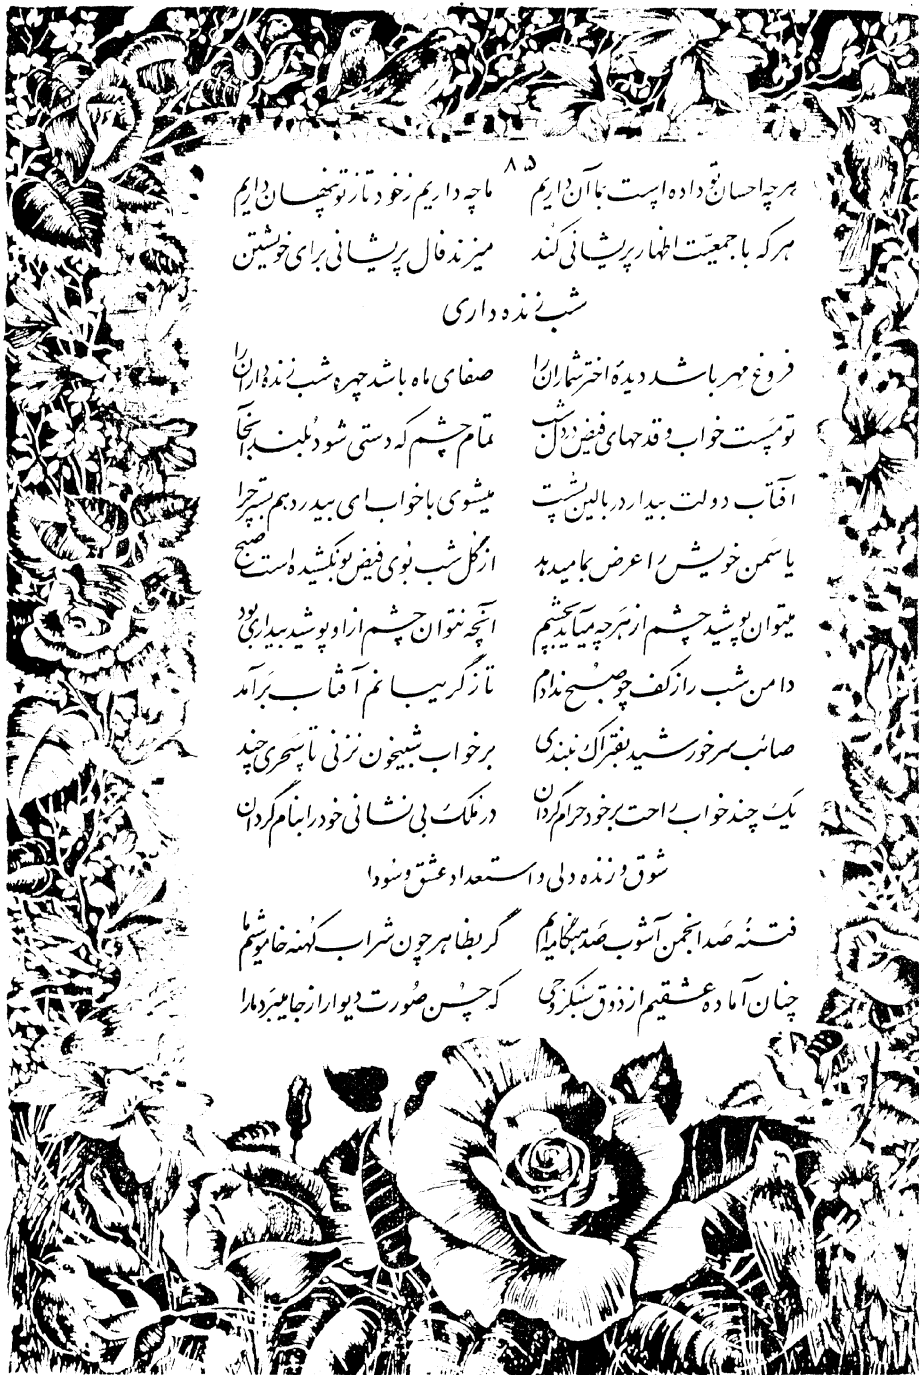 ۸۵
هرچه احسان تو داده است بما آن داریم ما چه داریم ز خود تا ز تو پنهان داریم
هر که با جمعیّت اظهار پریشانی کند میزند فال پریشانی برای خویشتن
شب زنده داری
فروغ مهر باشد دیدهٔ اختر شماران را صفای ماه باشد چهرهٔ شب زنده داران را
تو مست خواب و قدحهای فیض در دل شب تمام چشم که دستی شود بلند آنجا
آفتاب دولت بیدار در بالین تست میشوی با خواب ای بیدرد هم بستر چرا
یاسمن خویش را عرض بما میدهد از گل شب بوی فیض بو نکشیده است صبح
میتوان پوشید چشم از هرچه میآید بچشم آنچه نتوان چشم از او پوشید بیداری بود
دامن شب را ز کف چو صبح ندادم تا ز گریبانم آفتاب برآمد
صائب سر خورشید بفتراک نبندی بر خواب شبیخون نزنی تا سحری چند
یک چند خواب راحت بر خود حرام گردان در ملک بی نشانی خود را بنام گردان
شوق و زنده دلی و استعداد عشق و سودا
فتنهٔ صد انجمن آشوب صد هنگامه ایم گر بظاهر چون شراب کهنه خاموشیم ما
چنان آماده عشقیم از ذوق سبکروحی که حُسن صورت دیوار از جا میبرد ما را